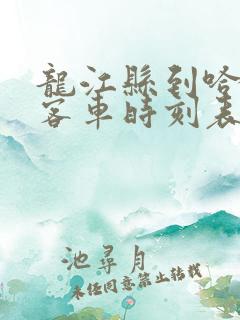 龍江縣到哈
客車時刻表
池尋月
未經同意禁止轉載